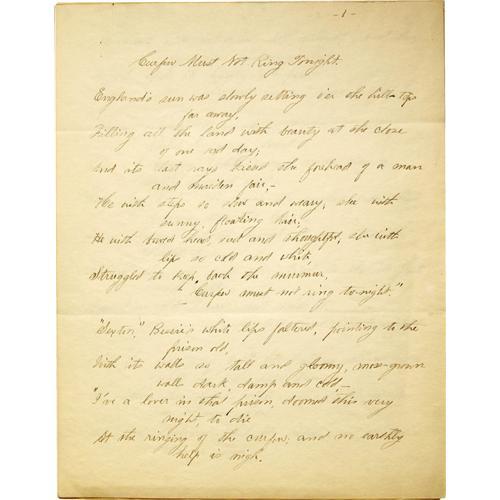 - 1 -
Curfew Must Not Ring Tonight.
England's sun was slowly setting o'er the hill-tops
far away,
Filling all the land with beauty at the close
of one sad day;
And its last rays kissed the forehead of a man
and maiden fair,-
He with steps so slow and weary; she with
sunny, floating hair;
He with bowed head, sad and thoughtful, she with
lips so cold and white,
Struggled to keep back the murmur,
"Curfew must not ring to-night."
"Sexton," Bessie's white lips faltered, pointing to the
prison old,
With its walls so tall and gloomy, moss-grown
walls dark, damp and cold,-
"I've a lover in that prison, doomed this very
night, to die
At the ringing of the curfew; and no earthly
help is nigh.